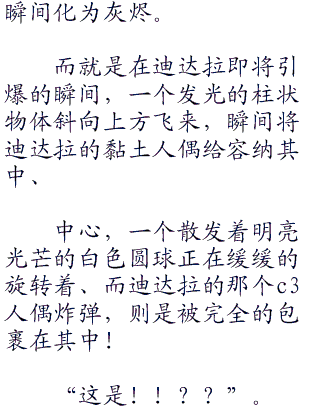 瞬间化为灰烬。
而就是在迪达拉即将引
爆的瞬间，一个发光的柱状
物体斜向上方飞来，瞬间将
迪达拉的黏土人偶给容纳其
中、
中心，一个散发着明亮
光芒的白色圆球正在缓缓的
旋转着、而迪达拉的那个c3
人偶炸弹，则是被完全的包
裹在其中！
“这是！！？？”。